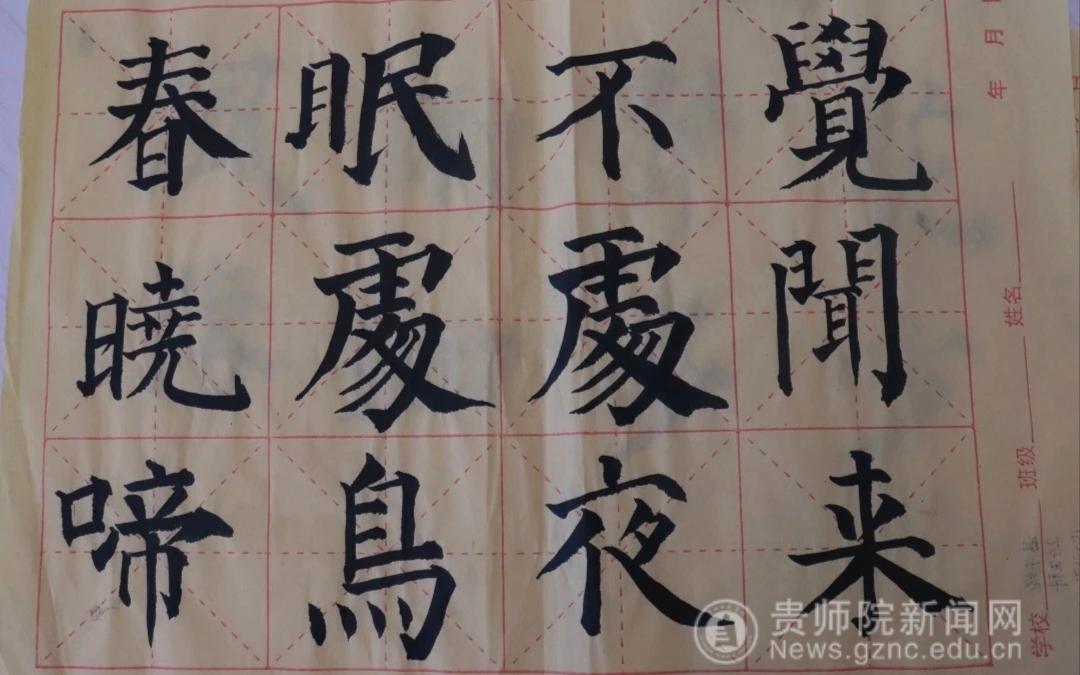 春眠不覺
暁處處聞
啼鳥夜来
学校 班级 姓名 年 月
贵师院新闻网
News.gznc.edu.cn